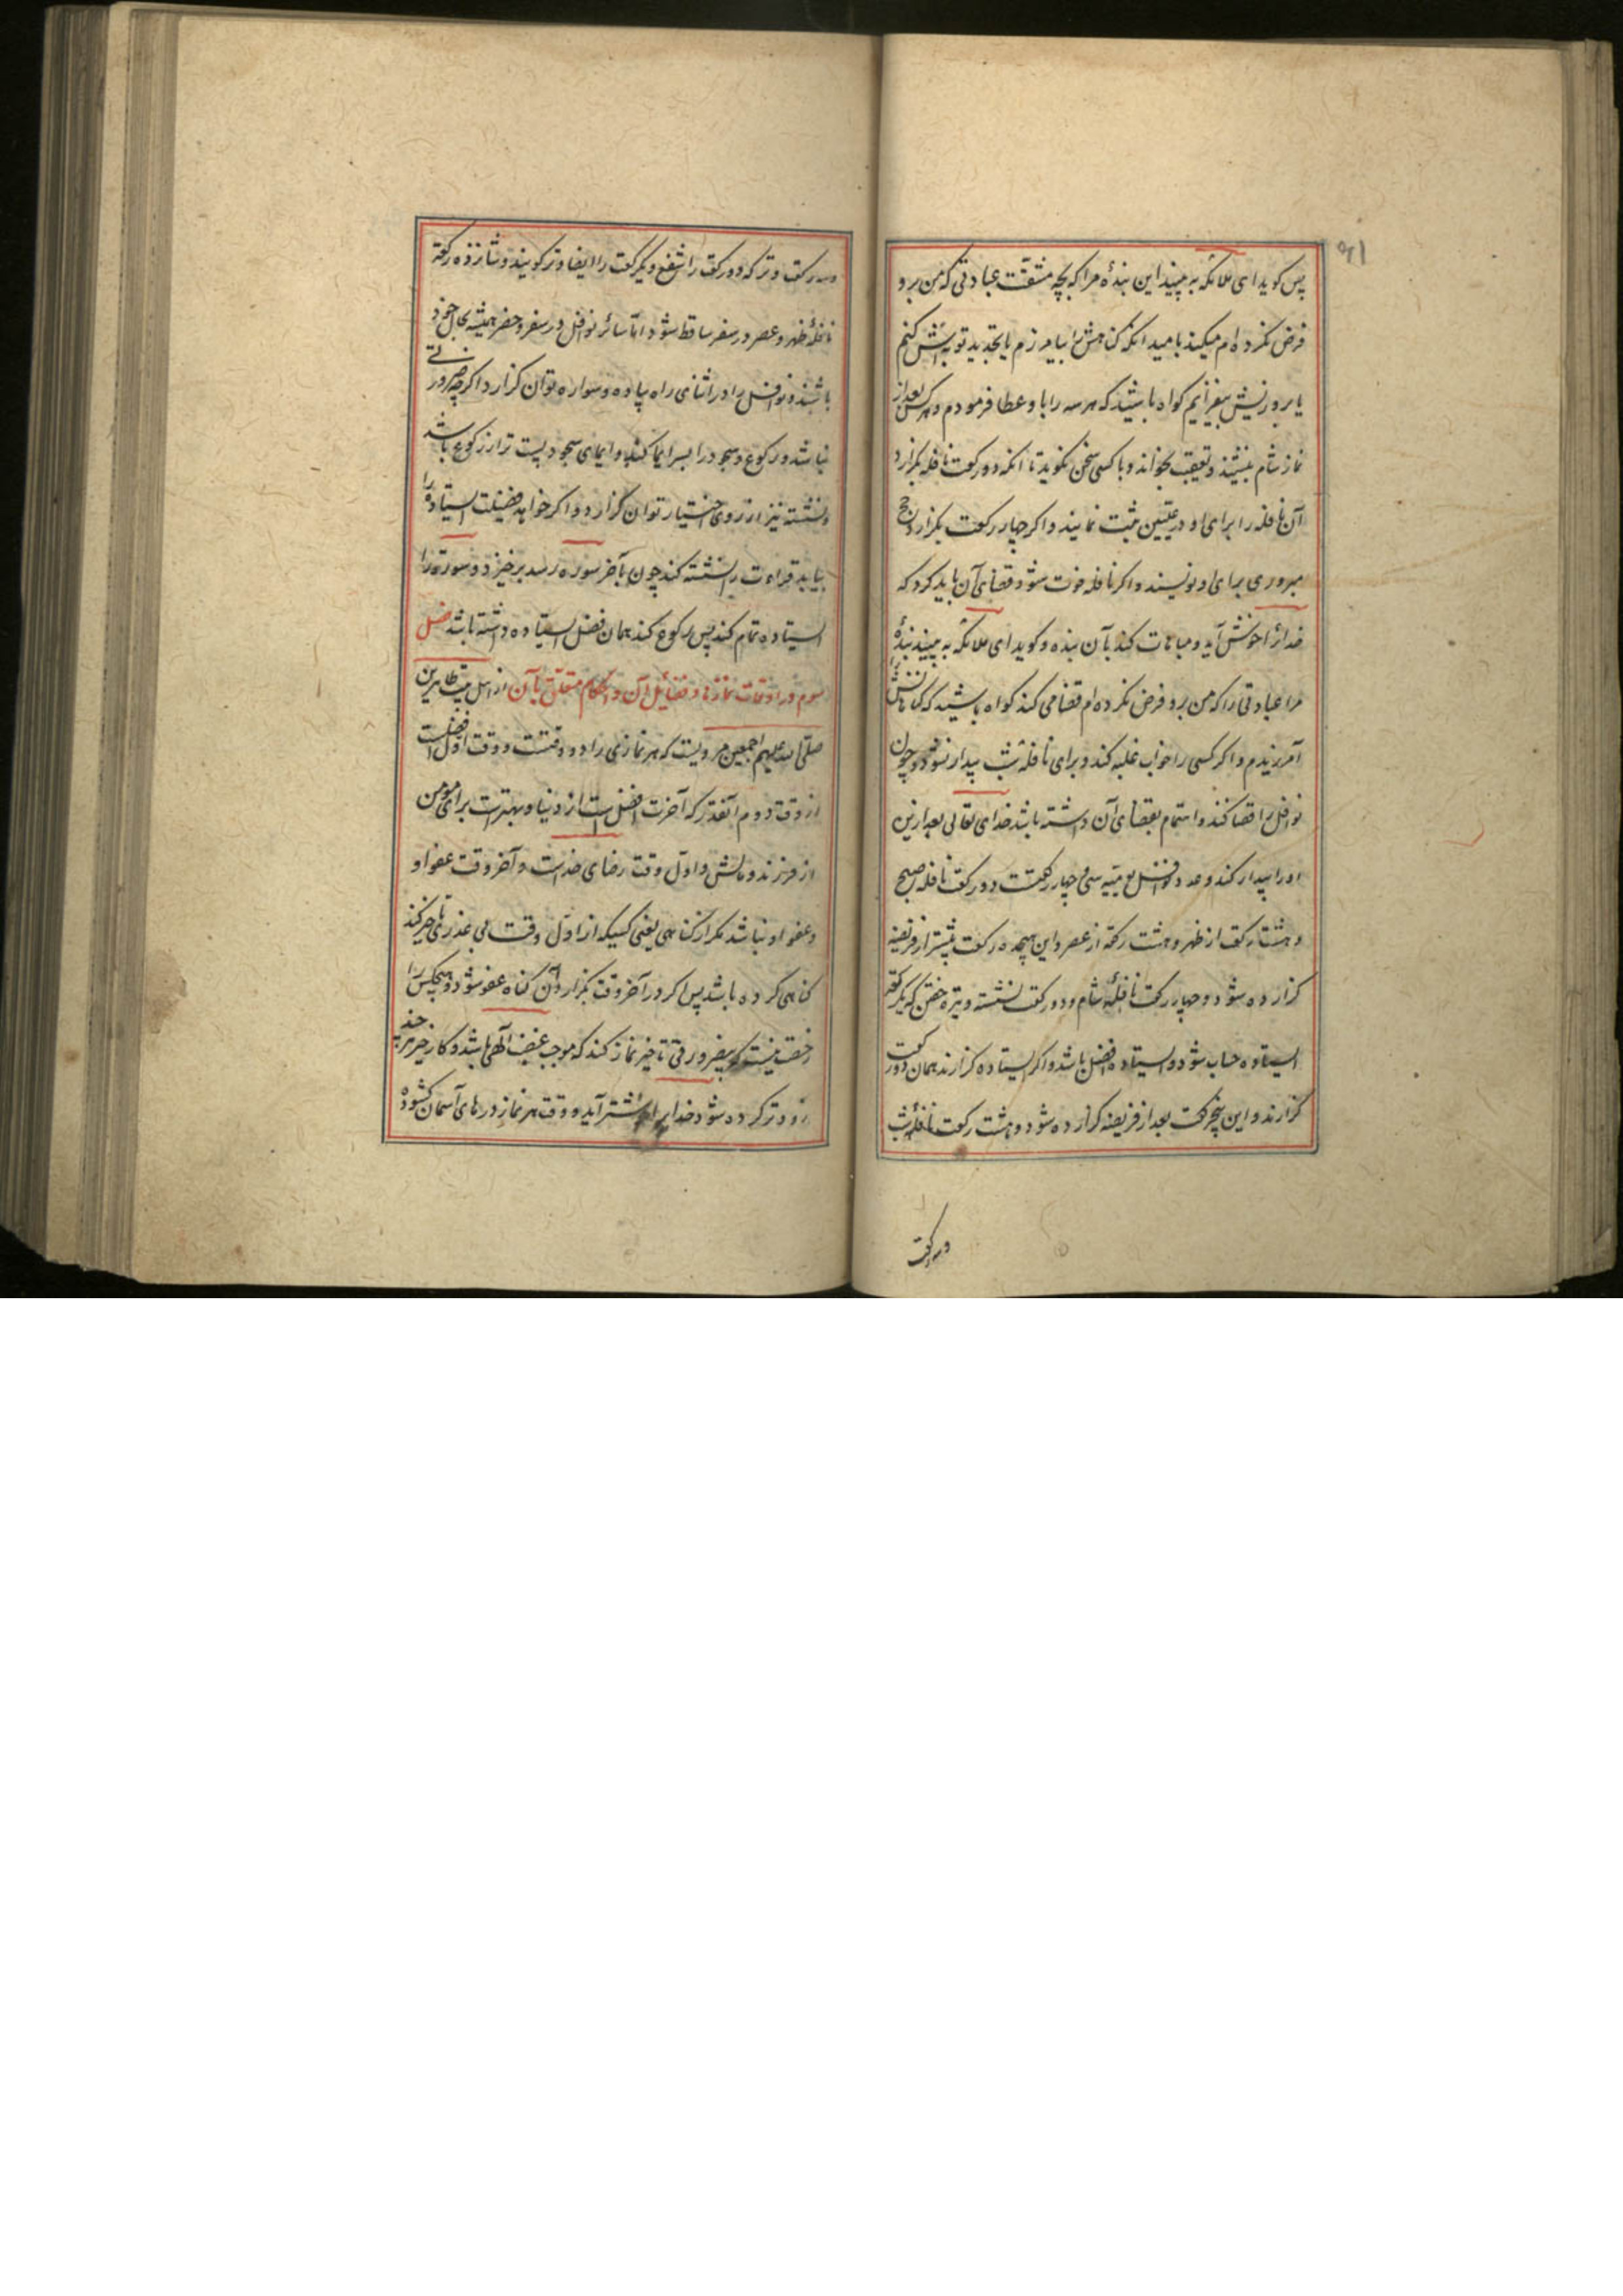 ۹۱
پس کوید ای ملائکه به بینید این بندهٔ مرا که بچه مشقّت عبادتی که من برو
فرض نکرده ام میکند بامید انکه کناهش را بیامرزم یا تجدید توبه اش کنم
یا بروزیش بیفزایم کواه باشید که هر سه را باو عطا فرمودم و هرکس بعد از
نماز شام بنشیند و تعقیب بخواند و با کسی سخن نکوید تا انکه دو رکعت نافله بکزارد
آن نافله را برای او در علّیین ثبت نمایند و اکر چهار رکعت بکزارد حج
مبروری برای او نویسند و اکر نافله فوت شود قضای آن باید کرد که
خدائرا خوش آید و مباهات کند بآن بنده و کوید ای ملائکه به بینید بندهٔ
مرا عبادتی را که من برو فرض نکرده ام قضا می کند کواه باشید که کناهانش
آمرزیدم و اکر کسی را خواب غلبه کند و برای نافلهٔ شب بیدار نشود و چون
نوافل را قضا کند و اهتمام بقضای آن داشته باشد خدای تعالی بعد ازین
اورا بیدار کند و عدد نوافل یومیّه سی و چهار رکعتست دو رکعت نافلهٔ صبح
و هشت رکعت از ظهر و هشت رکعة از عصر و این هیجده رکعت پیشتر از فریضه
کزارده شود و چهار رکعت نافلهٔ شام و دو رکعت نشسته وتیرهٔ خفتن که یکرکعة
ایستاده حساب شود و ایستاده افضل باشد و اکر ایستاده کزارند همان دو رکعت
کزارند و این پنج رکعت بعد از فریضه کزارده شود و هشت رکعت نافلهٔ شب
و سه رکعت
و سه رکعت وتر که دو رکعت را شفع و یکرکعت را ایضا وتر کویند و شانزده رکعة
نافلهٔ ظهر و عصر در سفر ساقط شود امّا سائر نوافل در سفر و حضر همیشه بحال خود
باشند و نوافل را در اثنای راه پیاده و سواره توان کزارد اکرچه ضرورتی
نباشد و رکوع و سجود را بسر ایما کند و ایمای سجود پست تر از رکوع باشد
و نشسته نیز از روی اختیار توان کزارد و اکر خواهد فضیلت ایستاده را
بیابد قراءت را نشسته کند چون بآخر سوره رسد برخیزد و سوره را
ایستاده تمام کند پس رکوع کند همان فضل ایستاده داشته باشد فصل
سوم در اوقات نمازها و فضائل آن و احکام متعلق بآن از اهل بیت طاهرین
صلّی الله علیهم اجمعین مرویست که هر نمازی را دو وقتست و وقت اوّل افضلست
از وقت دوم آنقدر که آخرت افضل است از دنیا و بهترست برای مومن
از فرزند و مالش و اوّل وقت رضای خداست و آخر وقت عفو او
و عفو او نباشد مکر از کناهی یعنی کسیکه از اوّل وقت بی عذر تاخیر کند
کناهی کرده باشد پس اکر در آخر وقت بکزارد آن کناه عفو شود و هیچکس را
رخصت نیست که بیضرورتی تاخیر نماز کند که موجب غضب الهی باشد و کار خیر هر چند
زودتر کرده شود خدایرا خوشتر آید و وقت هر نماز درهای آسمان کشوده